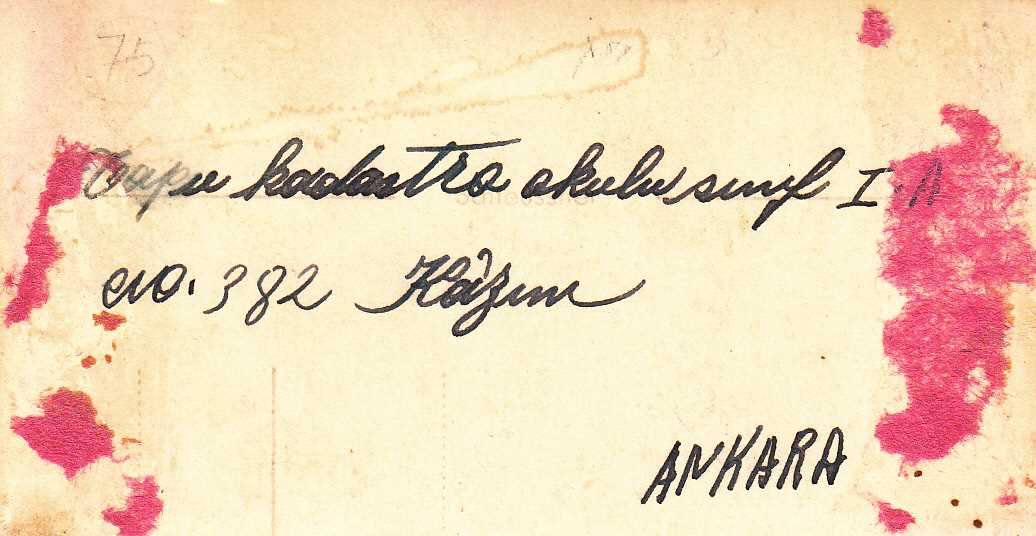 75
Tapu kadastro okulu sınıf I. A
no. 382 Kâzım
ANKARA